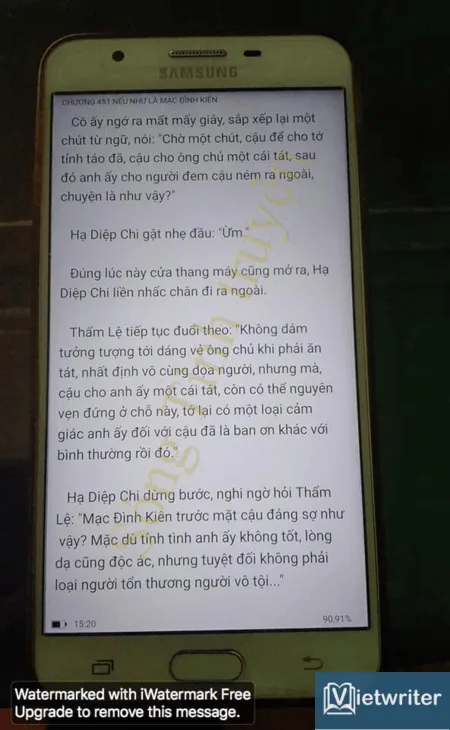 SAMSUNG
CHƯƠNG 451 NẾU NHƯ LÀ MẠC ĐÌNH KIÊN
Cô ấy ngớ ra mất mấy giây, sắp xếp lại một
chút từ ngữ, nói: "Chờ một chút, cậu để cho tớ
tỉnh táo đã, cậu cho ông chủ một cái tát, sau
đó anh ấy cho người đem cậu ném ra ngoài,
chuyện là như vậy?"
Hạ Diệp Chi gật nhẹ đầu: "Ừm."
Đúng lúc này cửa thang máy cũng mở ra, Hạ
Diệp Chi liền nhấc chân đi ra ngoài.
Thẩm Lệ tiếp tục đuổi theo: "Không dám
tưởng tượng tới dáng vẻ ông chủ khi phải ăn
tát, nhất định vô cùng dọa người, nhưng mà,
cậu cho anh ấy một cái tát, còn có thể nguyên
vẹn đứng ở chỗ này, tớ lại có một loại cảm
giác anh ấy đối với cậu đã là ban ơn khác với
bình thường rồi đó."
Hạ Diệp Chi dừng bước, nghi ngờ hỏi Thẩm
Lệ: "Mạc Đình Kiên trước mặt cậu đáng sợ như
vậy? Mặc dù tính tình anh ấy không tốt, lòng
dạ cũng độc ác, nhưng tuyệt đối không phải
loại người tổn thương người vô tội..."
15:20
90.91%
Watermarked with iWatermark Free
Upgrade to remove this message.
Vietwriter